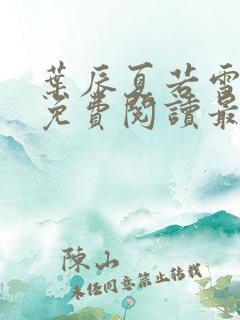 葉辰夏若雪
免費閱讀最
陳山
未经同意禁止转载